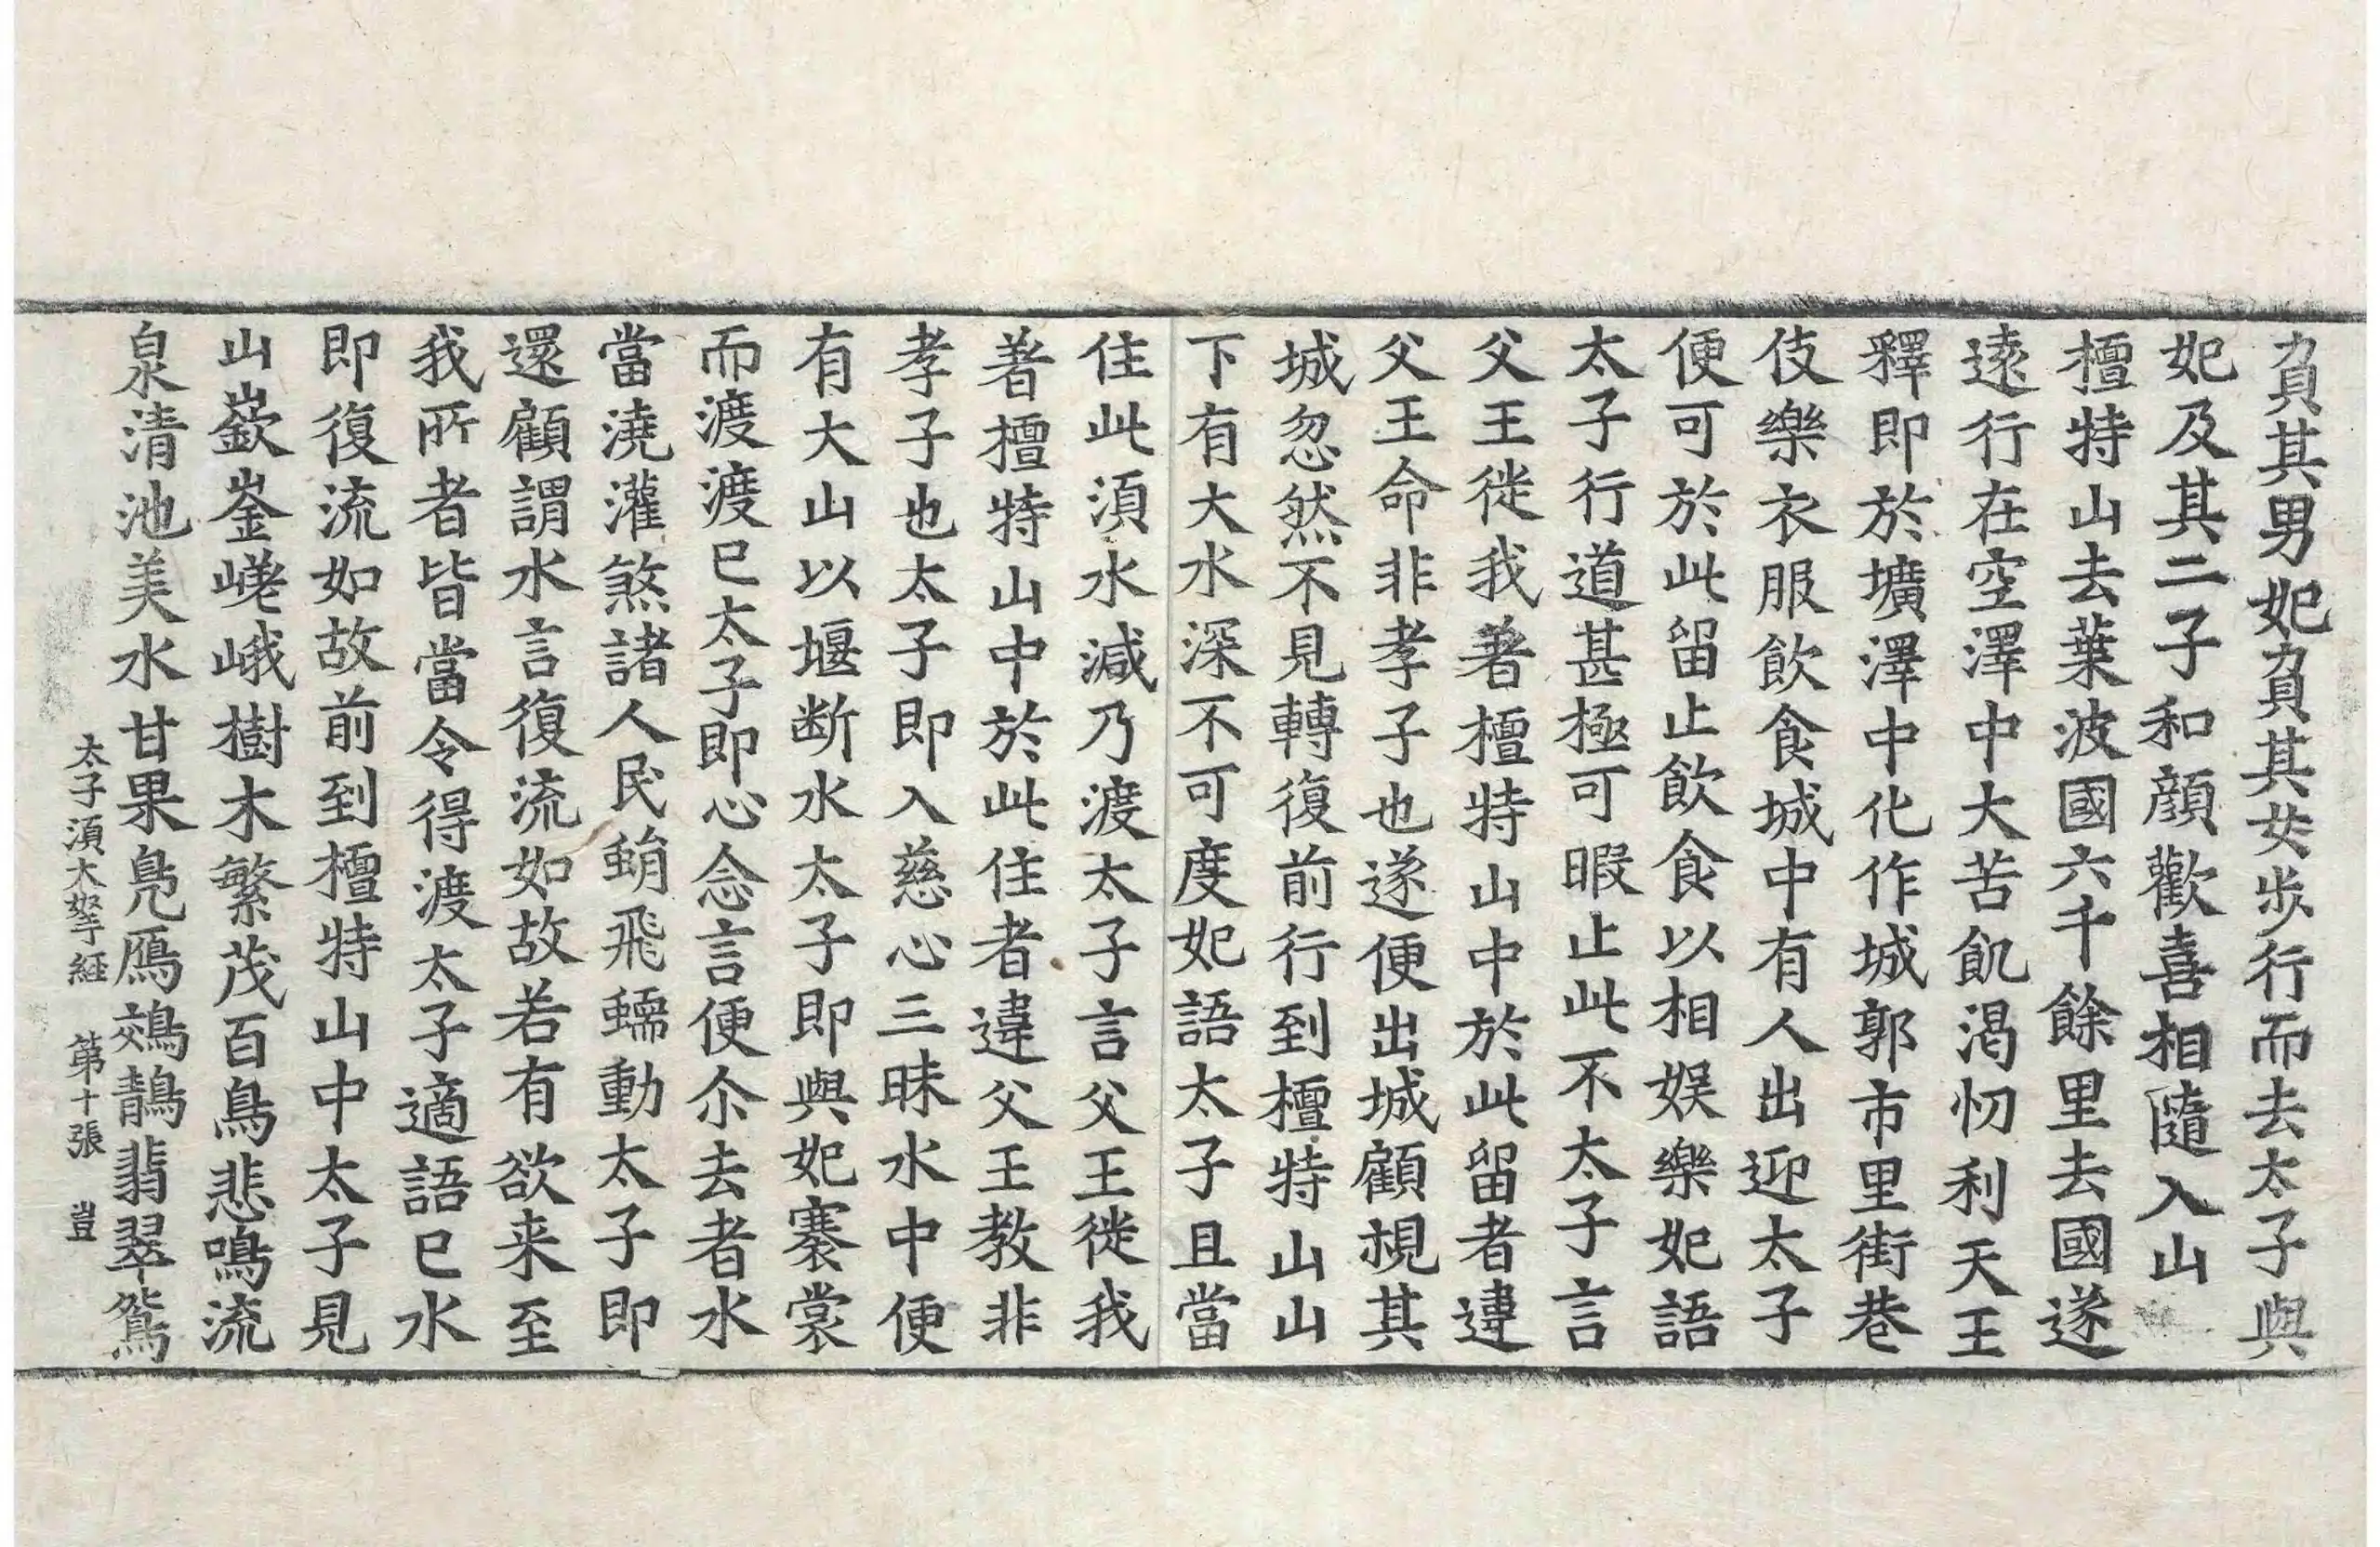 負其男妃負其女步行而去太子與
妃及其二子和顔歡喜相隨入山
檀特山去葉波國六千餘里去國遂
遠行在空澤中大苦飢渴忉利天王
釋即於壙澤中化作城郭市里街巷
伎樂衣服飲食城中有人出迎太子
便可於此留止飲食以相娱樂妃語
太子行道甚極可暇止此不太子言
父王徙我著檀特山中於此留者違
父王命非孝子也遂便出城顧視其
城忽然不見轉復前行到檀特山山
下有大水深不可度妃語太子且當
住此湏水減乃渡太子言父王徙我
著檀特山中於此住者違父王教非
孝子也太子即入慈心三昧水中便
有大山以堰断水太子即與妃褰裳
而渡渡已太子即心念言便尒去者水
當澆灌煞諸人民蜎飛蠕動太子即
還顧謂水言復流如故若有欲来至
我所者皆當令得渡太子適語已水
即復流如故前到檀特山中太子見
山嶔崟嵯峨樹木繁茂百鳥悲鳴流
泉清池美水甘果鳧鴈鵁鶄翡翠鴛
太子湏大拏経 第十張 豈